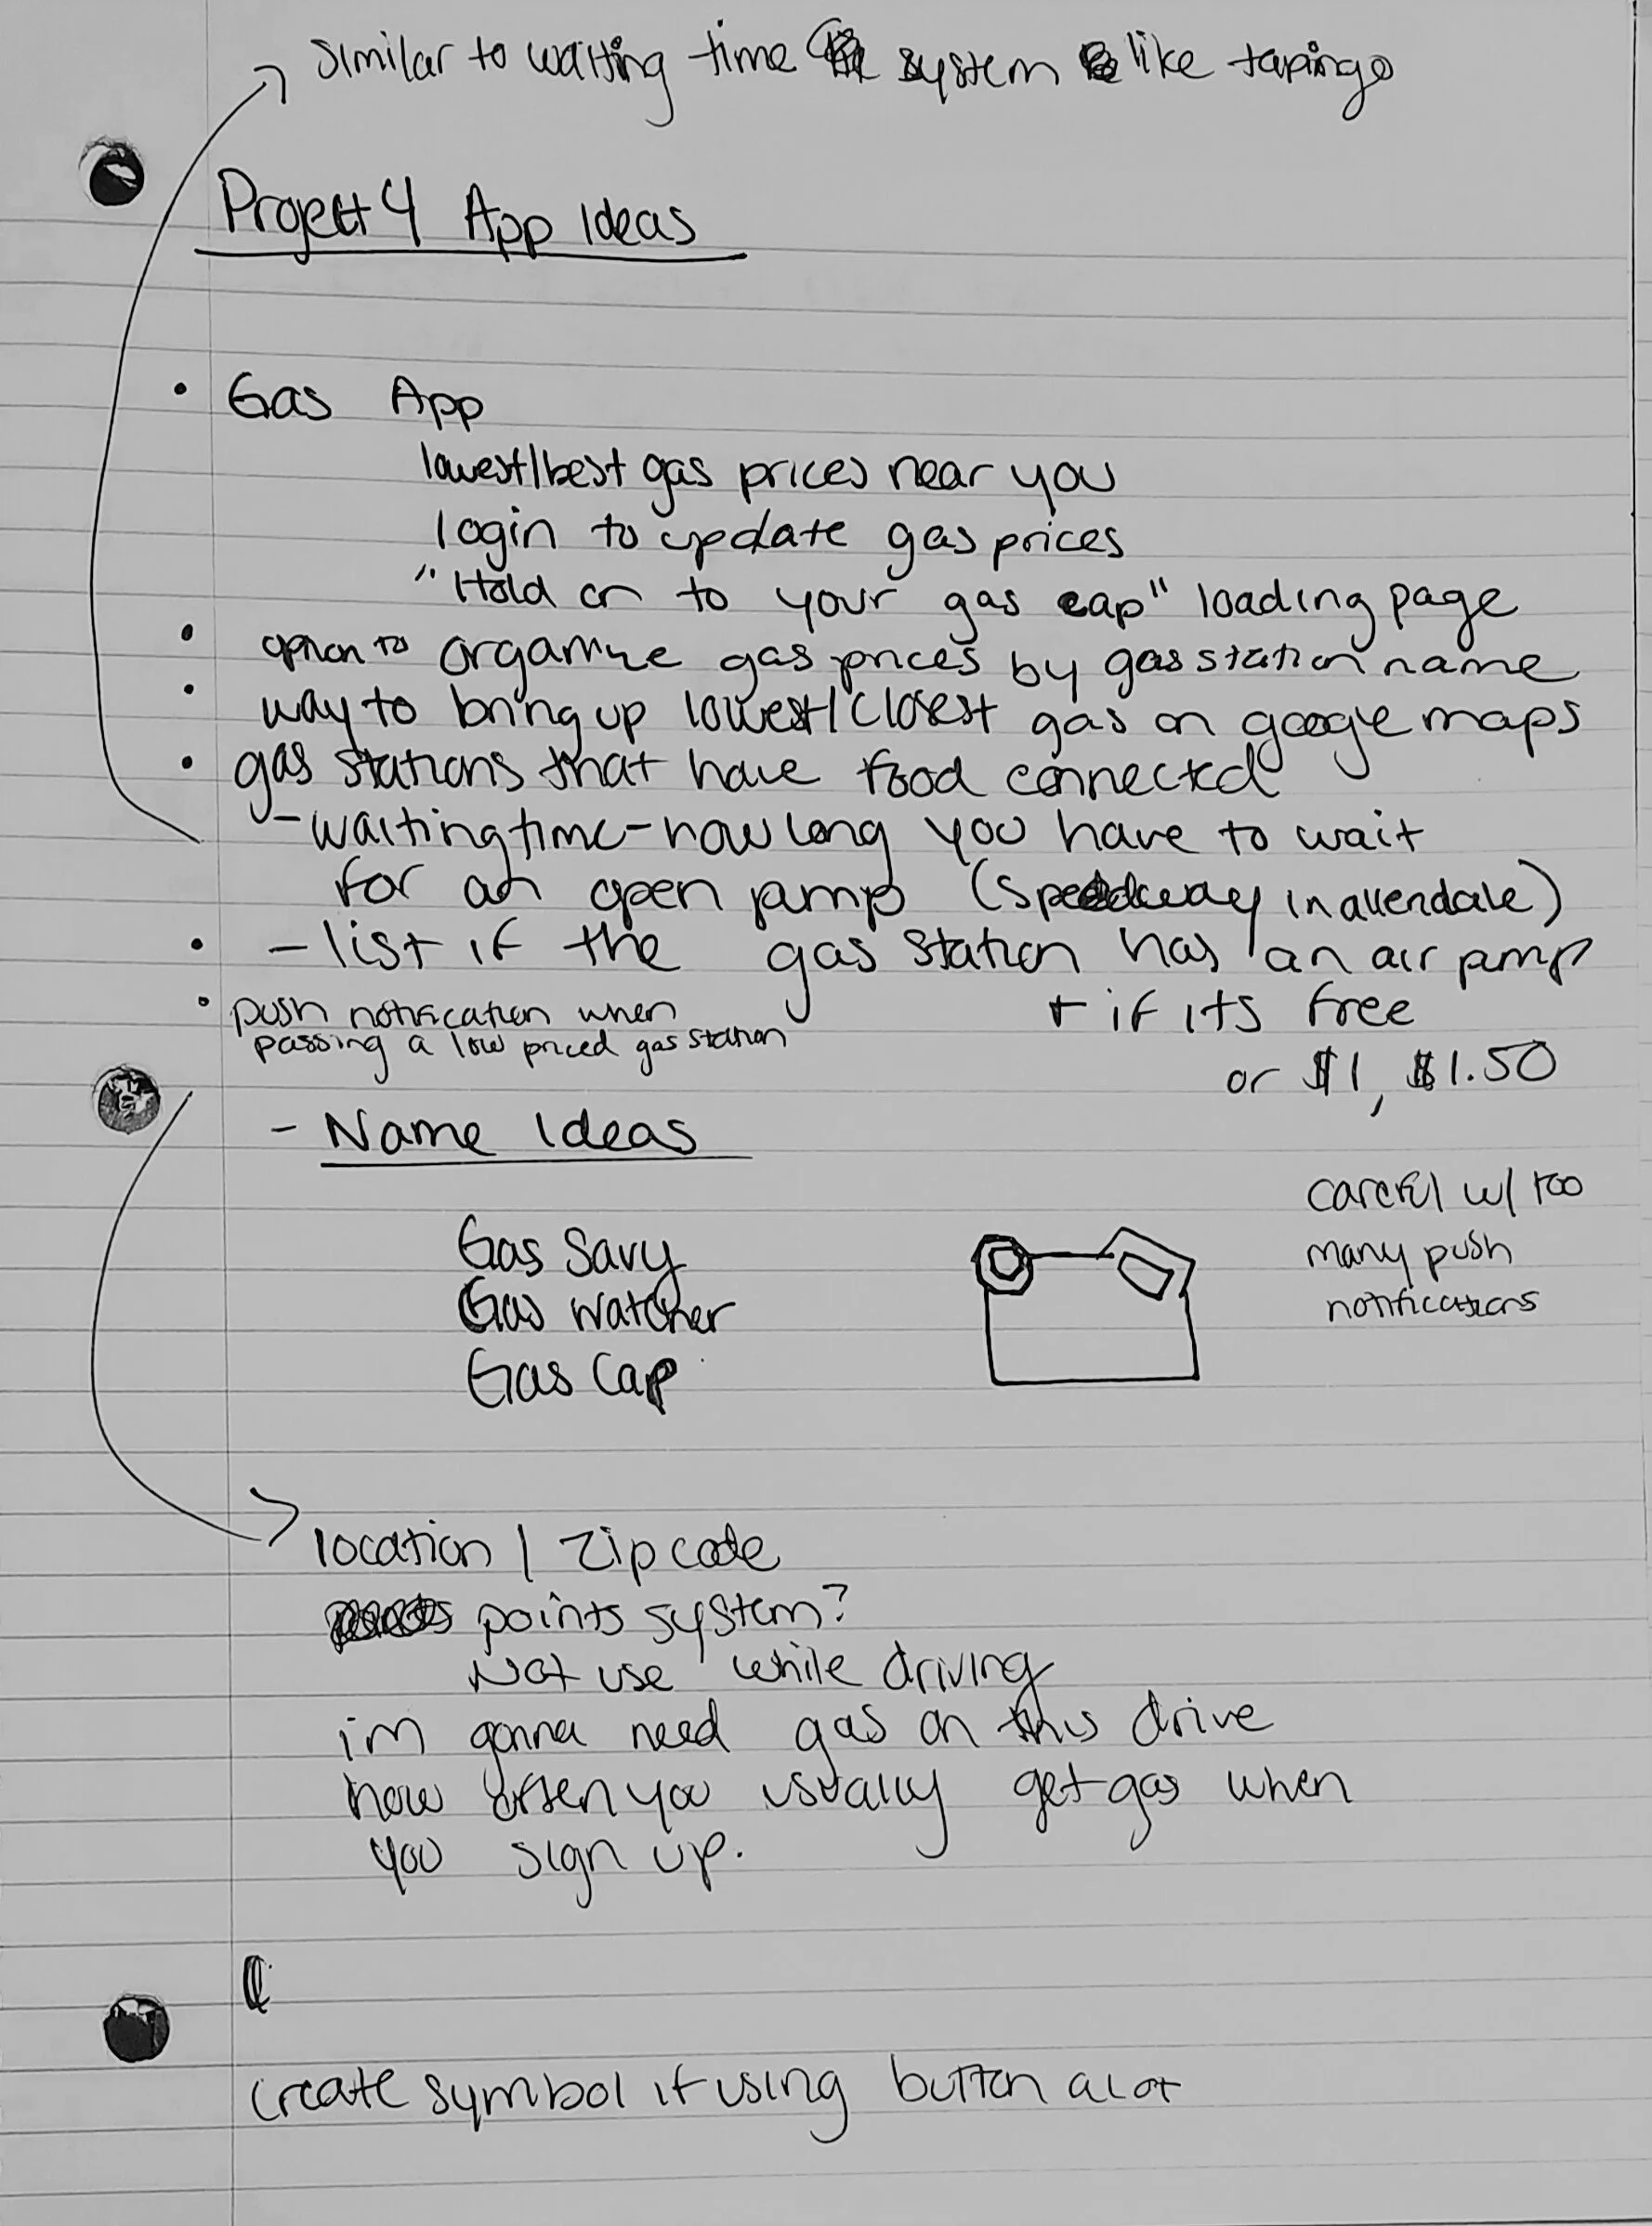 similar to waiting time system like tapingo
Project 4 App Ideas
• Gas App
lowest/best gas prices near you
login to update gas prices
"Hold on to your gas cap" loading page
• option to organize gas prices by gas station name
• way to bring up lowest/closest gas on google maps
• gas stations that have food connected
- waiting time - how long you have to wait
for an open pump (speedway in allendale)
• - list if the gas station has an air pump
+ if its free
or $1, $1.50
• push notification when
passing a low priced gas station
- Name Ideas
Gas Savy
Gas Watcher
Gas Cap
careful w/ too
many push
notifications
location / zip code
points system?
Not use while driving
im gonna need gas on this drive
how often you usually get gas when
you sign up.
create symbol if using button alot